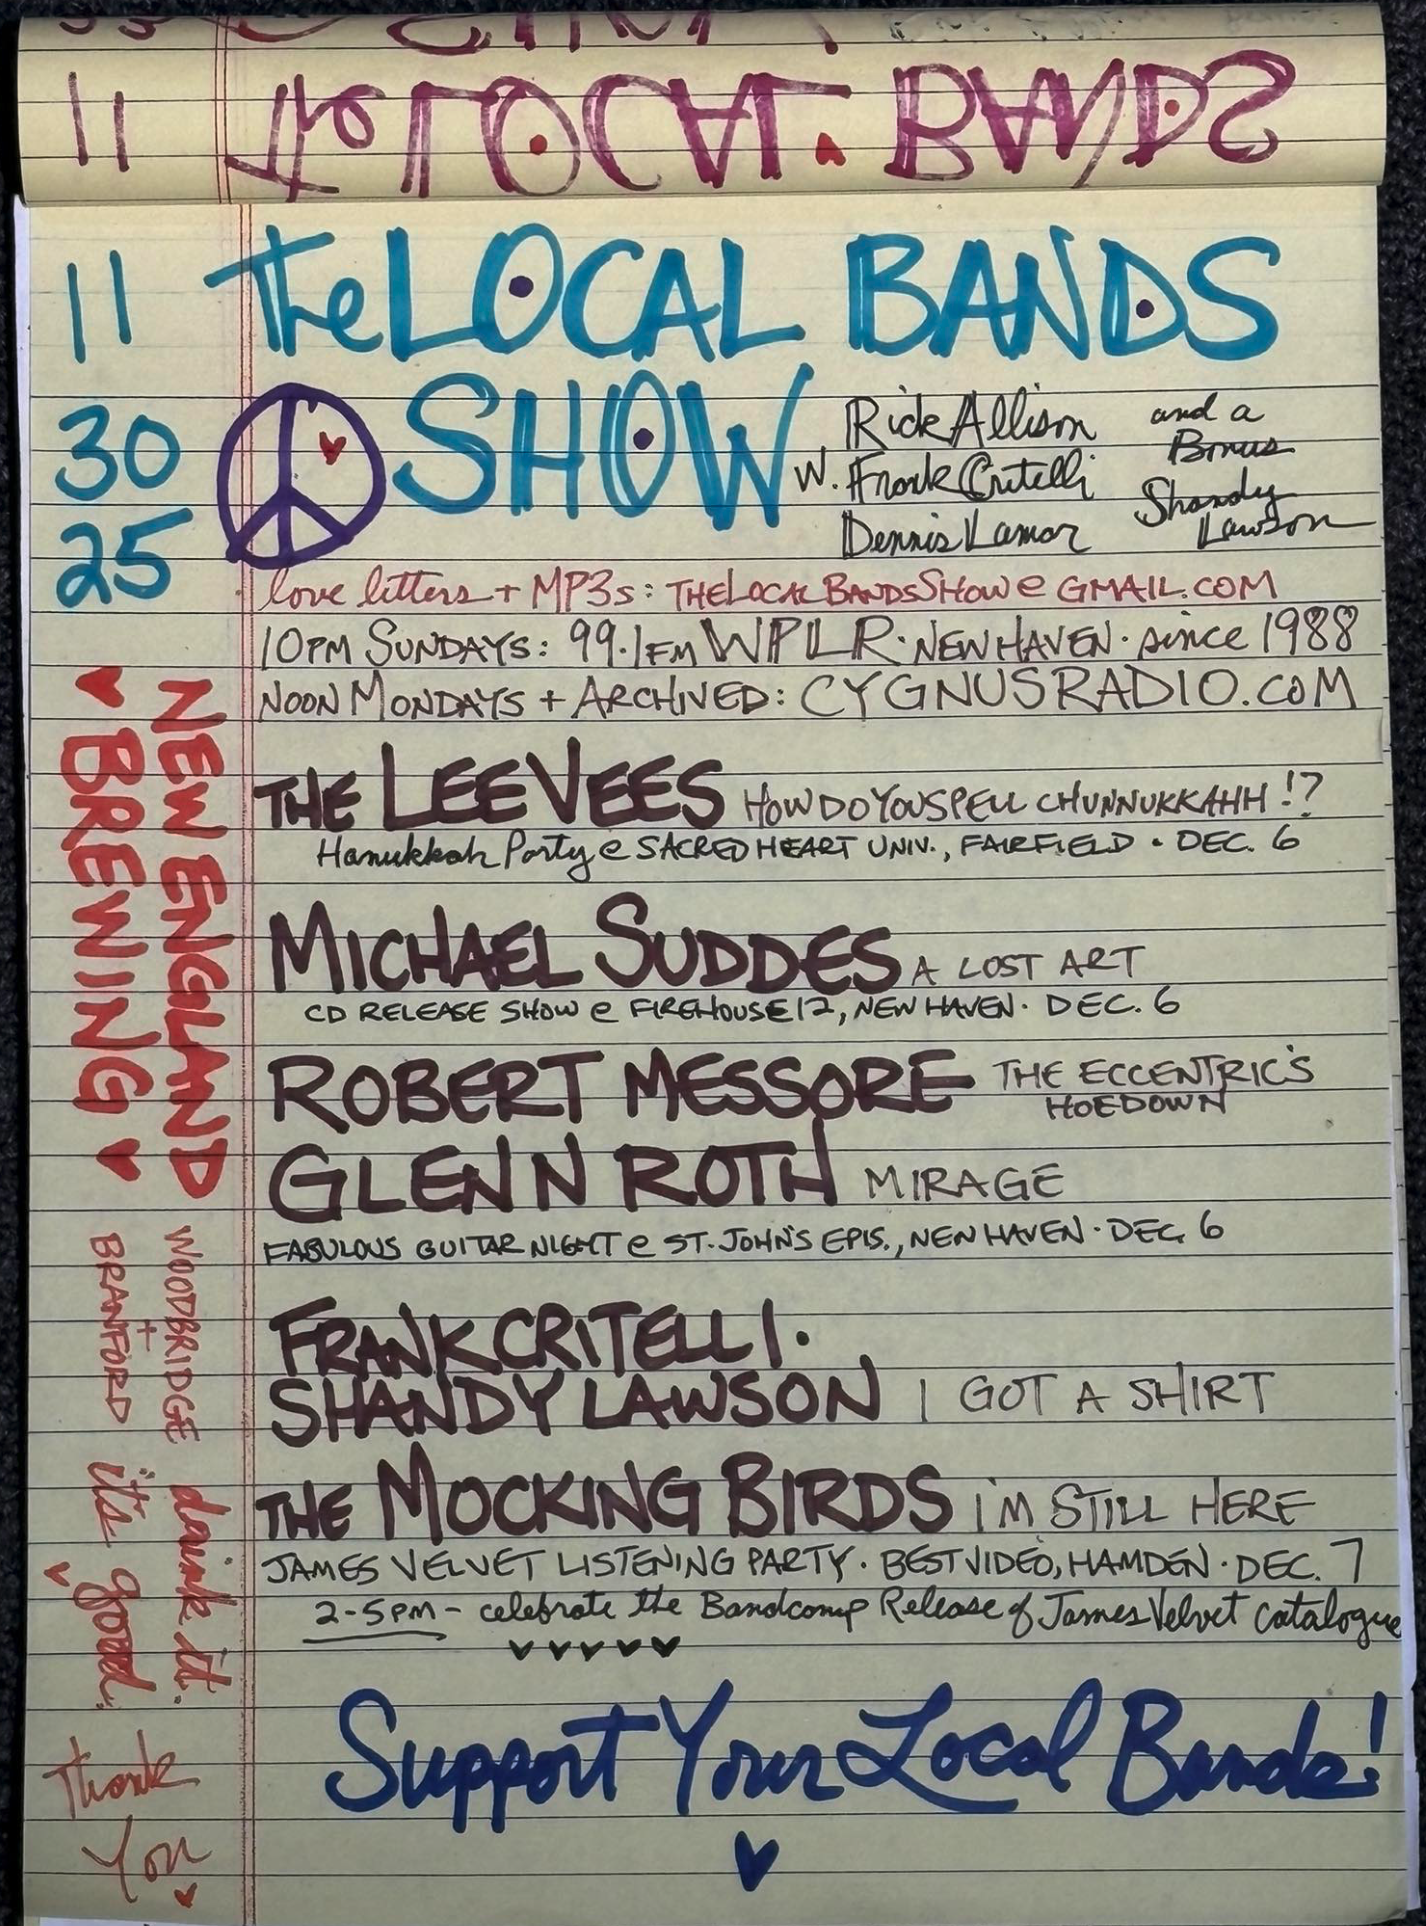 The LOCAL BANDS
11
11 The LOCAL BANDS
30 SHOW w. Rick Allison
Frank Critelli
Dennis Lamar
and a
Bonus
Shandy
Lawson
25
love letters + MP3s: THELOCALBANDSSHOW@GMAIL.COM
10PM SUNDAYS: 99.1FM WPLR · NEW HAVEN · since 1988
NOON MONDAYS + ARCHIVED: CYGNUSRADIO.COM
THE LEEVEES HOW DO YOU SPELL CHUNNUKKAHH!?
Hanukkah Party @ SACRED HEART UNIV., FAIRFIELD · DEC. 6
MICHAEL SUDDES A LOST ART
CD RELEASE SHOW @ FIREHOUSE 12, NEW HAVEN · DEC. 6
ROBERT MESSORE THE ECCENTRIC'S
HOEDOWN
GLENN ROTH MIRAGE
FABULOUS GUITAR NIGHT @ ST. JOHN'S EPIS., NEW HAVEN · DEC. 6
FRANK CRITELLI ·
SHANDY LAWSON I GOT A SHIRT
THE MOCKING BIRDS I'M STILL HERE
JAMES VELVET LISTENING PARTY · BEST VIDEO, HAMDEN · DEC. 7
2-5PM - celebrate the Bandcamp Release of James Velvet catalogue
Support Your Local Bands!
NEW ENGLAND
BREWING
WOODBRIDGE
+
BRANFORD
drink it.
it's good.
Thank
You